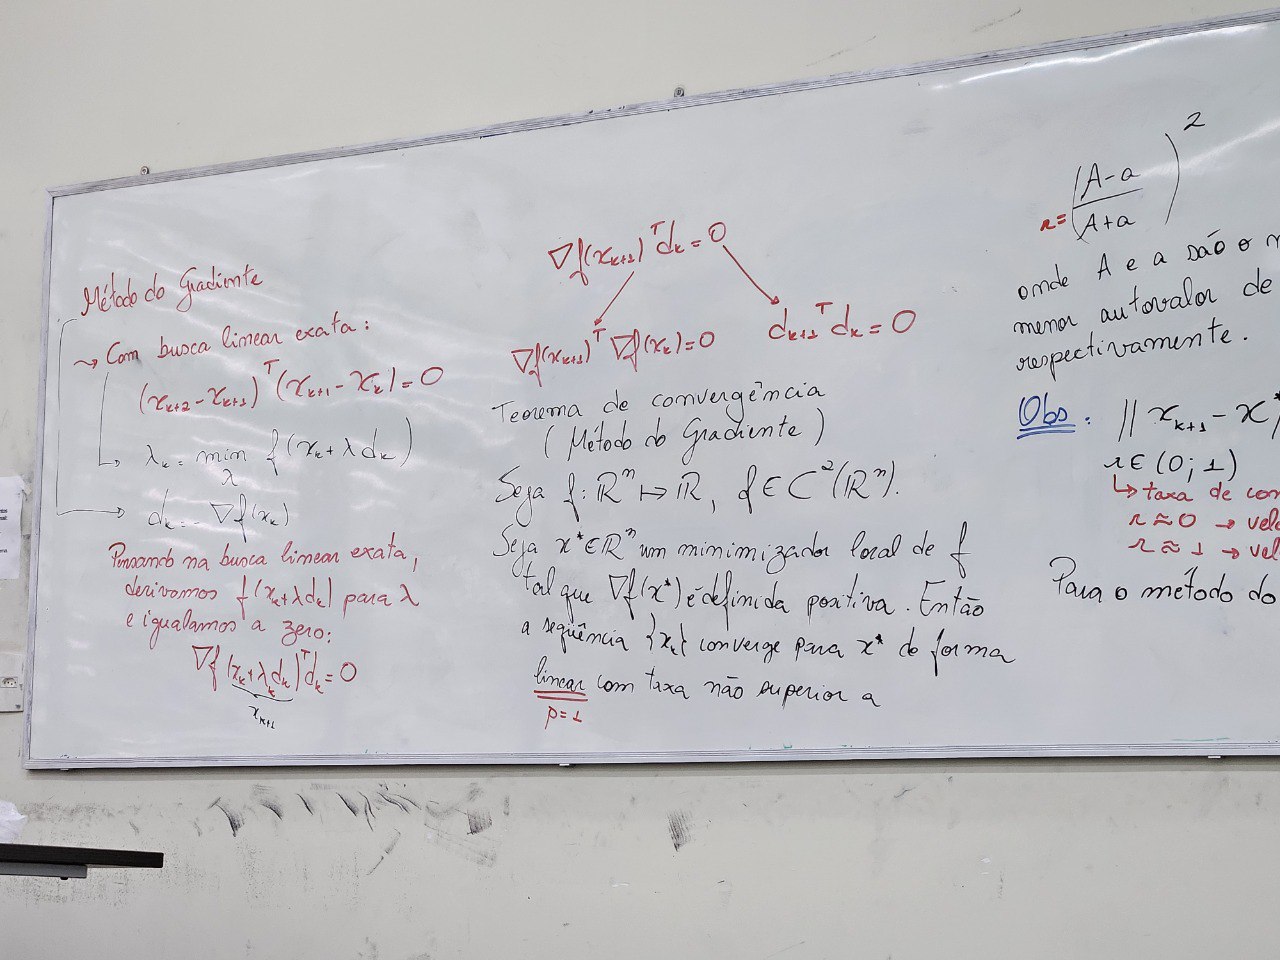 Método do Gradiente
→ Com busca linear exata:
(x_{k+2} - x_{k+1})^T (x_{k+1} - x_k) = 0
λ_k = min_λ f(x_k + λ d_k)
d_k = - ∇f(x_k)
Pensando na busca linear exata,
derivamos f(x_k + λ d_k) para λ
e igualamos a zero:
∇f(x_k + λ_k d_k)^T d_k = 0
x_{k+1}
∇f(x_{k+1})^T d_k = 0
∇f(x_{k+1})^T ∇f(x_k) = 0
d_{k+1}^T d_k = 0
Teorema de convergência
(Método do Gradiente)
Seja f: ℝ^n ↦ ℝ, f ∈ C^2(ℝ^n).
Seja x* ∈ ℝ^n um minimizador local de f
tal que ∇f(x*) é definida positiva. Então
a seqüência {x_k} converge para x* de forma
linear com taxa não superior a
p=1
r = ((A-a)/(A+a))^2
onde A e a são o
menor autovalor de
respectivamente.
Obs: || x_{k+1} - x*
r ∈ (0; 1)
↳ taxa de con
r ≈ 0 → velo
r ≈ 1 → vel
Para o método do